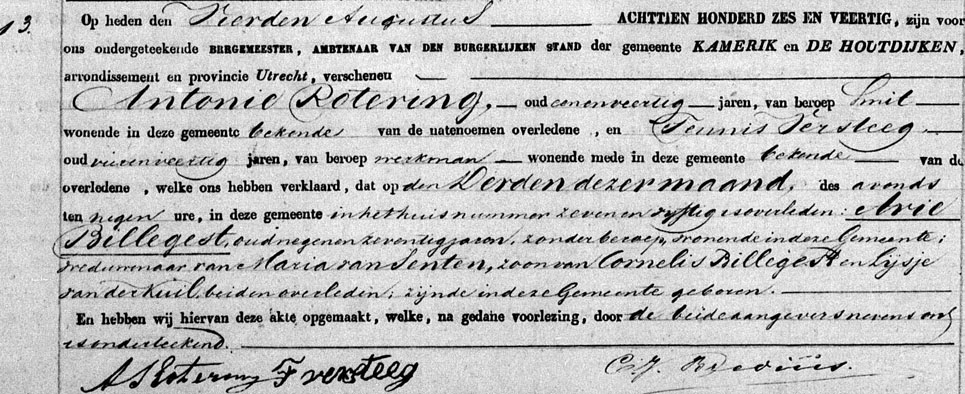 13.
Op heden den Vierden Augustus ACHTTIEN HONDERD ZES EN VEERTIG, zijn voor
ons ondergeteekende BURGEMEESTER, AMBTENAAR VAN DEN BURGERLIJKEN STAND der gemeente KAMERIK en DE HOUTDIJKEN,
arrondissement en provincie Utrecht, verschenen
Antonie Rotering, oud eenenveertig jaren, van beroep Smit
wonende in deze gemeente bekende van de natenoemen overledene, en Teunis Versteeg
oud vierenveertig jaren, van beroep werkman wonende mede in deze gemeente bekende van de
overledene, welke ons hebben verklaard, dat op den Derden dezer maand, des avonds
ten negen ure, in deze gemeente in het huis nummer zeven en vijftig is overleden: Arie
Billegest, oud negen en zeventig jaren, zonder beroep, wonende in deze Gemeente;
weduwenaar van Maria van Senten, zoon van Cornelis Billegest en Lijsje
van der Kuil, beiden overleden; zijnde in deze Gemeente geboren.
En hebben wij hiervan deze akte opgemaakt, welke, na gedane voorlezing, door de beide aangevers nevens ons
is onderteekend.
A Rotering T versteeg C. J. Bredius.